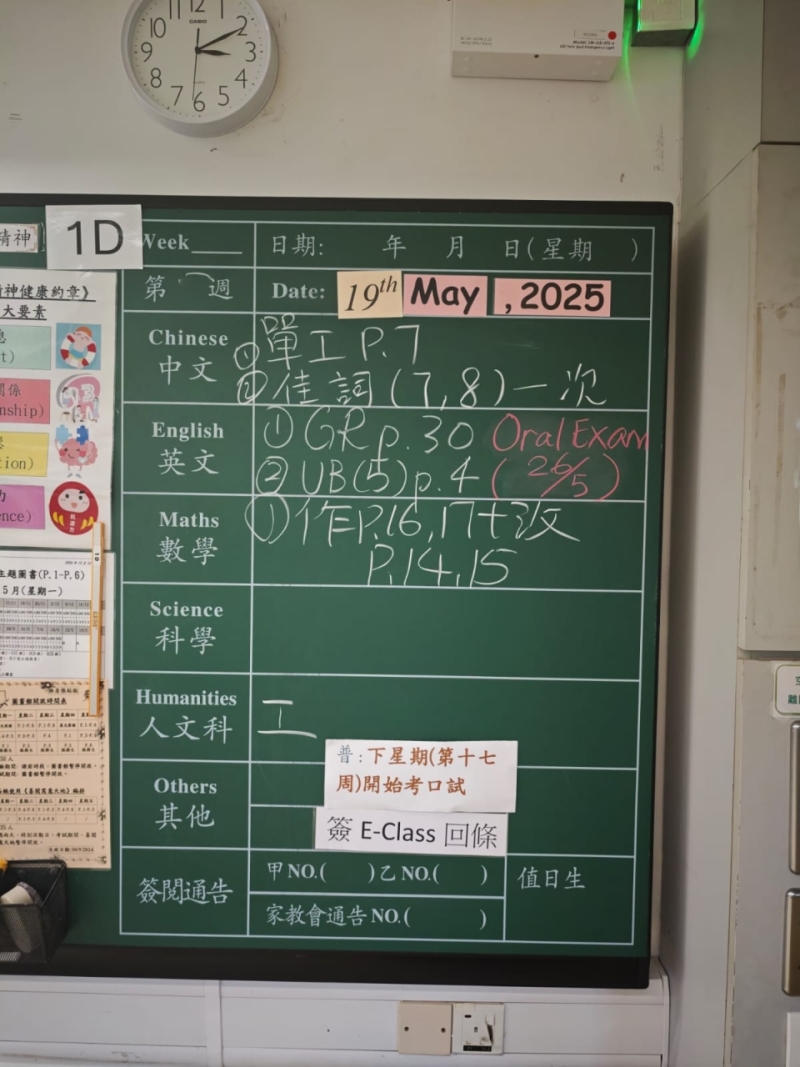 CASIO
10 11 12 1 2 3 4 5 6 7 8
1D
精神
Week____
日期: 年 月 日(星期 )
第 一 週
Date: 19th May , 2025
神健康約章》
大要素
Chinese
中文
①單工 P.7
②佳詞 (7,8) 一次
English
英文
① GR p.30 Oral Exam
② UB(5) p.4 (26/5)
Maths
數學
① 作P.16,17+改
P.14,15
關係
nship)
tion)
力
ence)
主題圖書(P.1-P.6)
5月(星期一)
Science
科學
Humanities
人文科
工
圖書館開放時間表
Others
其他
普:下星期(第十七
周)開始考口試
簽 E-Class 回條
簽閱通告
甲NO.( )乙NO.( )
家教會通告NO.( )
值日生